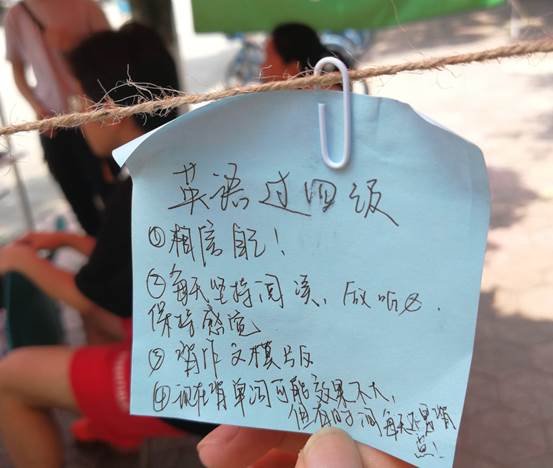 英语过四级
①相信自己！
②每天坚持阅读、放听力.
保持感觉
③背作文模版
④现在背单词可能效果不大，
但有时间每天还是背
点.